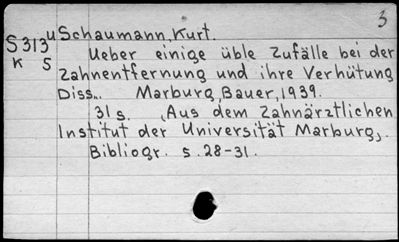 3
S313u Schaumann, Kurt.
K 5 Ueber einige üble Zufälle bei der
Zahnentfernung und ihre Verhütung
Diss.. Marburg, Bauer, 1939.
31 s. (Aus dem Zahnärztlichen
Institut der Universität Marburg).
Bibliogr. s. 28-31.